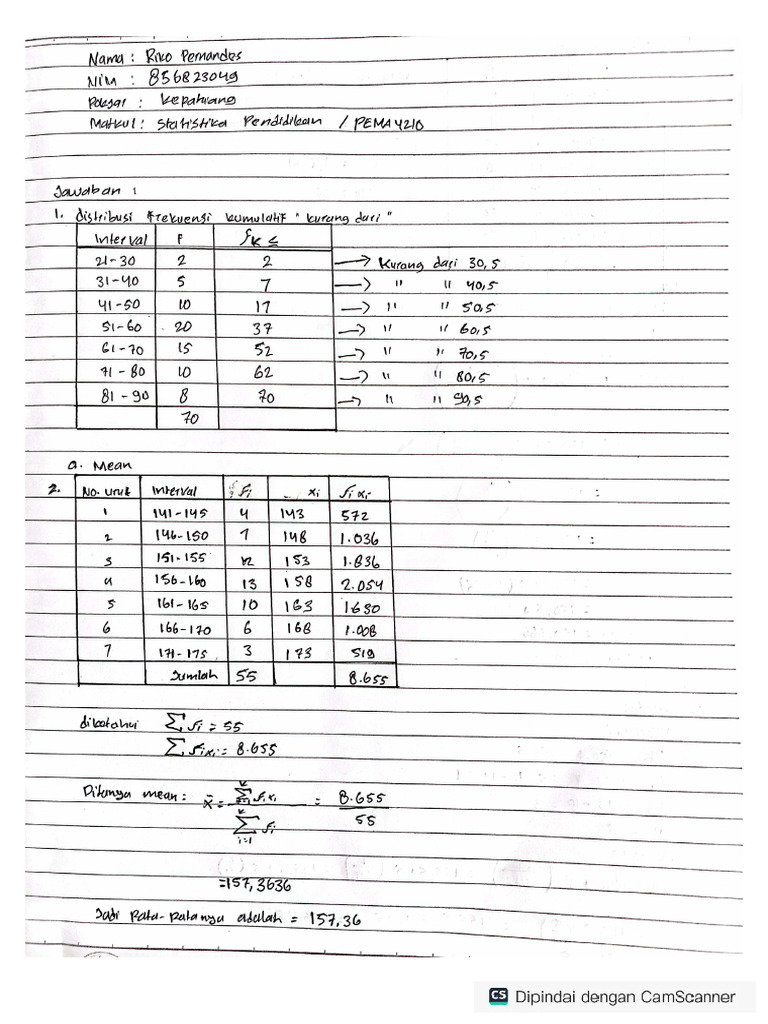 Nama : Riko Pernandes
NIM : 856823049
Pokjar : Kepahiang
Matkul : Statistika Pendidikan / PEMA4210
Jawaban :
1. distribusi frekuensi kumulatif "kurang dari"
Interval F fk ≤
21-30 2 2 → Kurang dari 30,5
31-40 5 7 → " " 40,5
41-50 10 17 → " " 50,5
51-60 20 37 → " " 60,5
61-70 15 52 → " " 70,5
71-80 10 62 → " " 80,5
81-90 8 70 → " " 90,5
70
a. Mean
2. No. urut Interval fi xi fi xi
1 141-145 4 143 572
2 146-150 7 148 1.036
3 151-155 12 153 1.836
4 156-160 13 158 2.054
5 161-165 10 163 1630
6 166-170 6 168 1.008
7 171-175 3 173 519
Jumlah 55 8.655
diketahui ∑ fi = 55
∑ fixi = 8.655
Ditanya mean : x̄ = ∑ᵏᵢ₌₁ fi xi / ∑ᵏᵢ₌₁ fi = 8.655 / 55
= 157,3636
Jadi Rata-ratanya adalah = 157,36
CS Dipindai dengan CamScanner